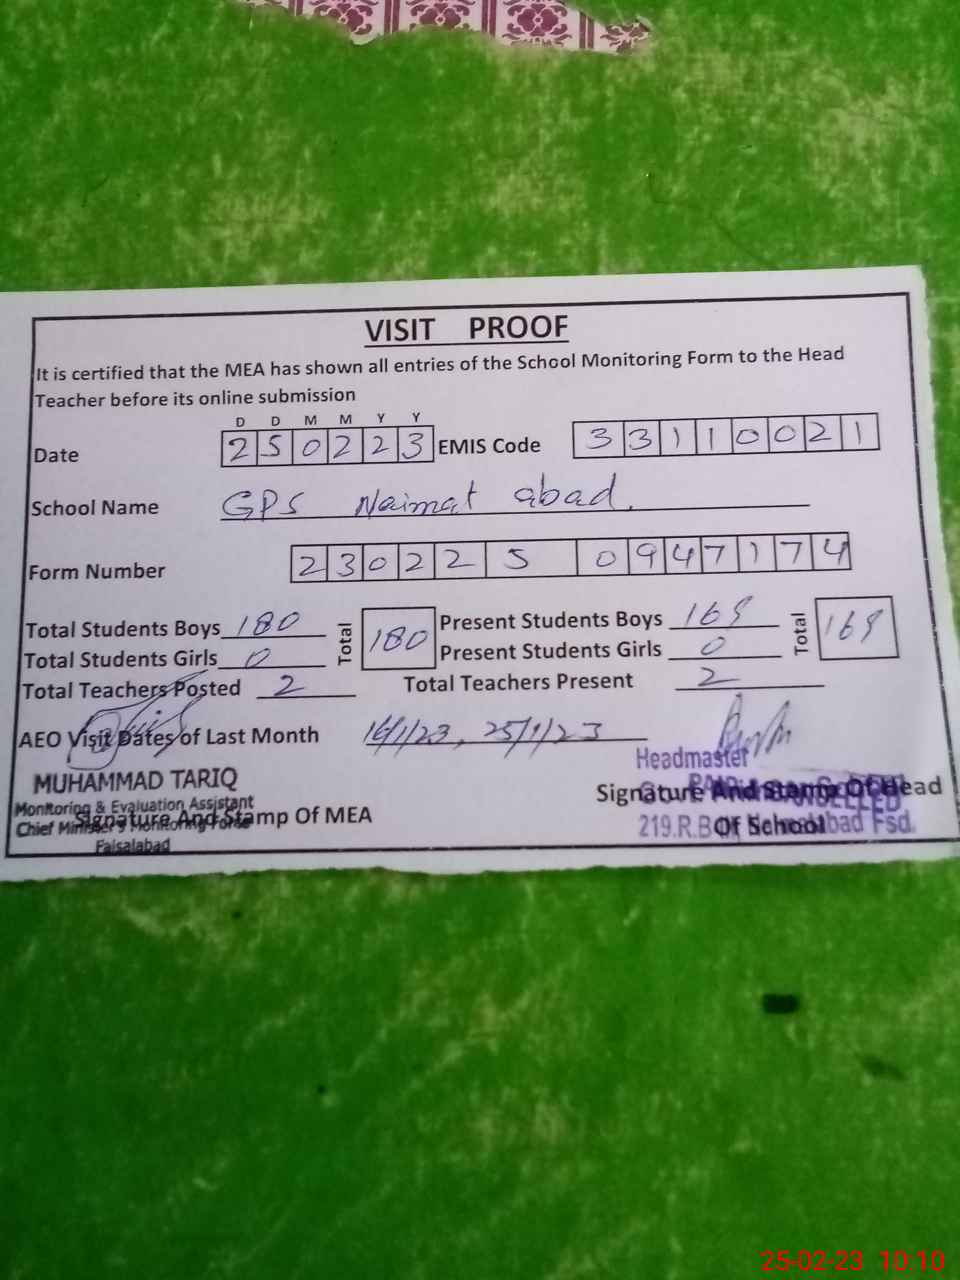 VISIT PROOF
It is certified that the MEA has shown all entries of the School Monitoring Form to the Head
Teacher before its online submission
D D M M Y Y
Date 250223 EMIS Code 33110021
School Name GPS Naimat abad.
Form Number 23022 5 0947174
Total Students Boys 180 Total 180 Present Students Boys 169 Total 169
Total Students Girls 0 Present Students Girls 0
Total Teachers Posted 2 Total Teachers Present 2
AEO Visit Dates of Last Month 16/1/23, 25/1/23
MUHAMMAD TARIQ Headmaster
Monitoring & Evaluation Assistant Signature And Stamp Of Head
Chief Minister's Monitoring Force Signature And Stamp Of MEA 219.R.B Of School Fsd.
Faisalabad
25-02-23 10:10